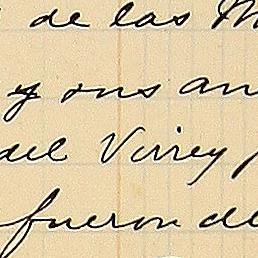 de las M
y ons an
del Virrey
fueron de